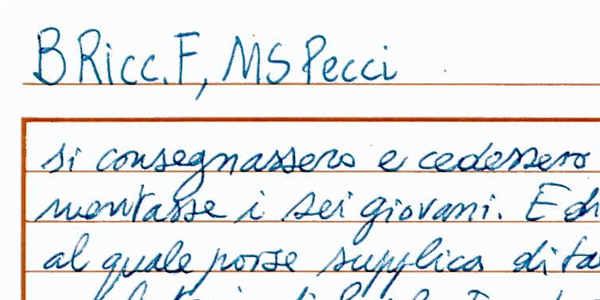 B Ricc. F, MS Pecci
si consegnassero e cedessero
montasse i sei giovani. E
al quale porse supplica di